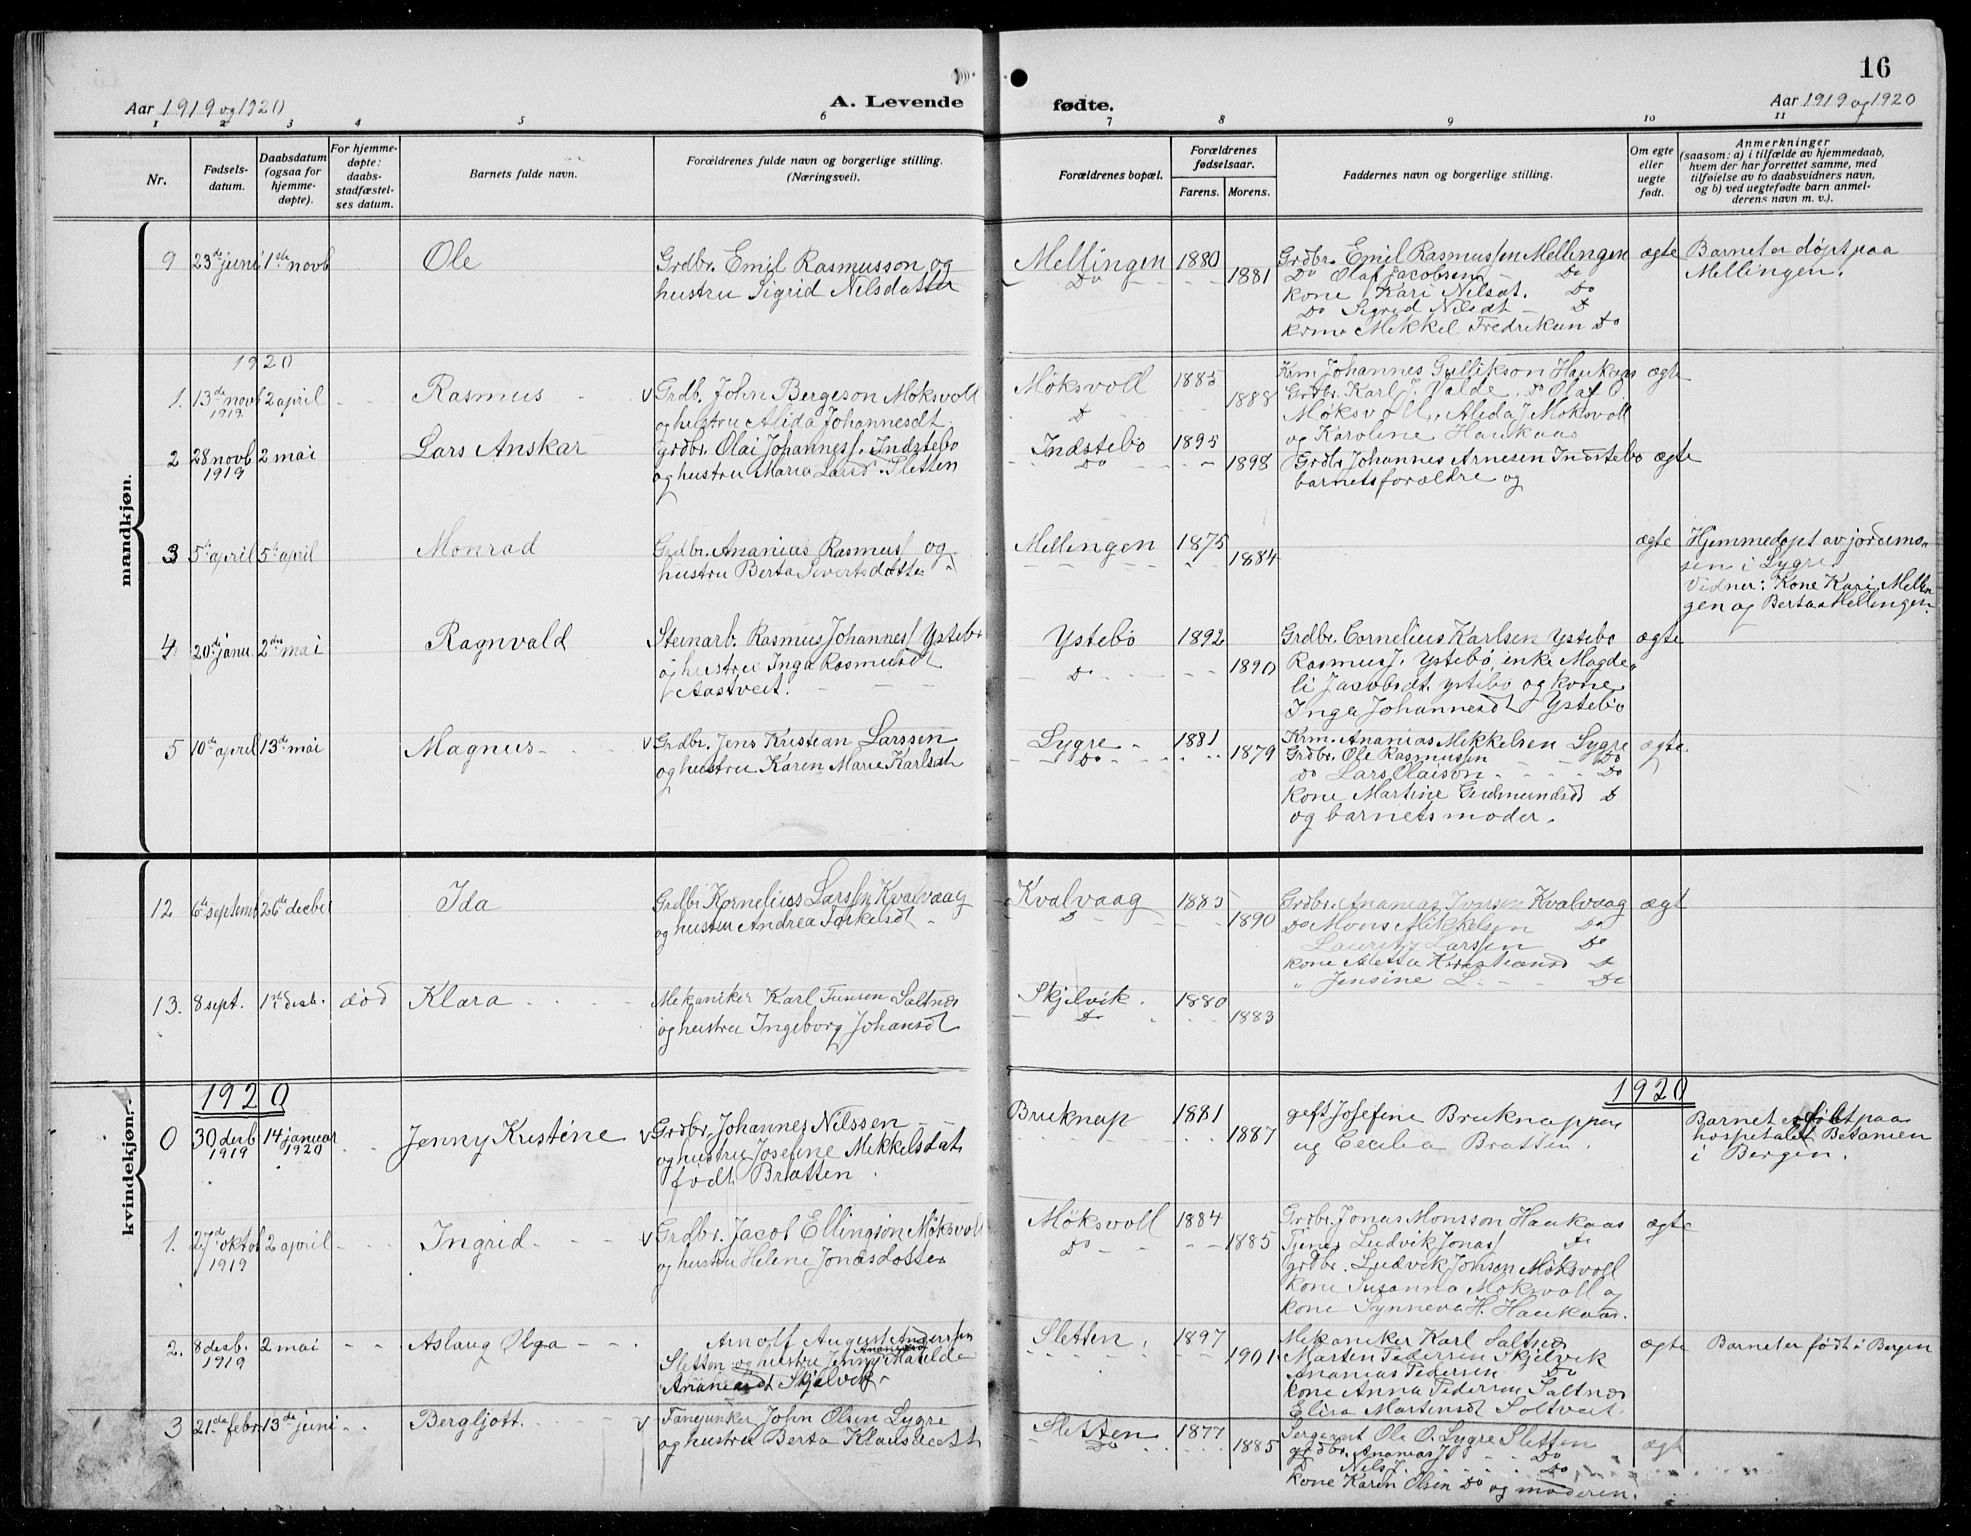 16
Aar 1919 og 1920
A. Levende
fødte.
Aar 1919 og 1920
1 2 3 4 5 6 7 8 9 10 11
Nr.
Fødsels-
datum.
Daabsdatum
(ogsaa for
hjemme-
døpte).
For hjemme-
døpte:
daabs-
stadfæstel-
ses datum.
Barnets fulde navn.
Forældrenes fulde navn og borgerlige stilling.
(Næringsvei).
Forældrenes bopæl.
Forældrenes
fødselsaar.
Farens. Morens.
Faddernes navn og borgerlige stilling.
Om egte
eller
uegte
født.
Anmerkninger
(saasom: a) i tilfælde av hjemmedaab,
hvem der har forrettet samme, med
tilføielse av to daabsvidners navn,
og b) ved uegtefødte barn anmel-
derens navn m. v.).
mandkjøn.
9 23de juni 1ste novb Ole
Grdbr. Emil Rasmusson og
hustru Sigrid Nilsdatter
Mellingen 1880
Do 1881
Grdbr. Emil Rasmussen Mellingen
Do Olaf Jacobsen Do
Kone Kari Nilsdt. Do
Do Sigrid Nilsdt Do
Krma Mikkel Fredriksen Do
ægte
Barnet er døpt paa
Mellingen.
1920
1. 13de novb 2 april Rasmus
1919
Grdb. John Bergeson Møksvoll
og hustru Alida Johannesdt.
Møksvoll 1885
Do 1888
Krm. Johannes Gullikson Haukaas
Grdbr. Karl J. Valde. Do Olaf O.
Møksvoll, Alida J Møksvoll
og Karoline Haukaas
ægte
2 28 novb 2 mai Lars Anskar
1919
Grdbr. Olai Johanness. Indstebø
og hustru Maria Larsd. Sletten
Indstebø 1895
Do 1898
Grdbr Johannes Arnesen Indstebø
barnets forældre og
ægte
3 5te april 5te april Monrad
Grdbr. Ananias Rasmuss og
hustru Berta Sivertsdatter
Mellingen 1875
1884
ægte
Hjemmedøpt av jordemo-
sen i Lygre
Vidner: Kone Kari Mellin
gen og Berta Mellingen.
4 20de janu. 2den mai Ragnvald
Stenarb. Rasmus Johanness Ystebø
og hustru Inga Rasmusdt
f. Aastveit.
Ystebø 1892
Do 1890
Grdbr. Cornelius Karlsen Ystebø
Rasmus J. Ystebø, enke Magde-
li Jacobsdt. Ystebø og kone
Inga Johannesdt Ystebø
ægte
5 10de april 13de mai Magnus
Grdbr. Jens Kristian Larssen
og hustru Karen Marie Karlsdt
Lygre 1881
Do 1879
Krm. Ananias Mikkelsen Lygre
Grdbr. Ole Rasmussen Do
Do Lars Olaison Do
Kone Martine Gudmundsd Do
og barnets moder.
ægte.
kvindekjøn.
12 6te septemb 26de decbr Ida
Grdbr Kornelius Larssen Kvalvaag
og hustru Andrea Torkelsdt
Kvalvaag 1885
Do 1890
Grdbr. Ananias Ivarsen Kvalvaag
Do Mons Mikkelsen Do
Lauritz Larssen Do
Kone Aletta Kristiansd Do
" Jensine L. Do
ægt
13. 8 sept. 1ste desb. død Klara
Mekaniker Karl Saltnes
og hustru Ingeborg Johansdt
Skjelvik. 1880
Do 1883
1920
1920
0 30 desb 14 januar Jenny Kristine
1919 1920
Grdbr. Johannes Nilssen
og hustru Josefine Mikkelsdat
født Bratten.
Bruknap 1881
1887
gift Josefine Bruknappen
og Cecilia Bratten.
Barnet er født paa
hospitalet Betanien
i Bergen.
1. 27de oktob 2 april Ingrid
1919
Grdbr. Jacob Ellingson Møksvoll
og hustru Helene Jonasdotter
Møksvoll 1884
Do 1885
Grdbr. Jonas Monsson Haukaas
Tjener Ludvik Jonass Do
grdbr. Ludvik Jonson Møksvoll
Kone Susanna Møksvoll og
Kone Synneva H. Haukaas.
ægte
2. 8 desb. 2 mai Aslaug Olga
1919
Arnolf August Anderssen
Sletten og hustru Jenny Matilde
Skjelvik
Sletten. 1897
1901
Mekaniker Karl Saltnes
Marten Pedersen Skjelvik
Ananias Pedersen Do
Kone Anna Pedersen Saltnes
Elisa Martinsdt Soltveit
ægte
Barnet er født i Bergen
3 21de febr 13de juni Bergljott.
Fanejunker John Olsen Lygre
og hustru Berta Klausdatt
Sletten 1877
Do 1885
Sergeant Ole O. Lygre Sletten
grdbr. Ananias J. Do
D Nils J. Do
Kone Karen Olsen Do og moderen.
ægt